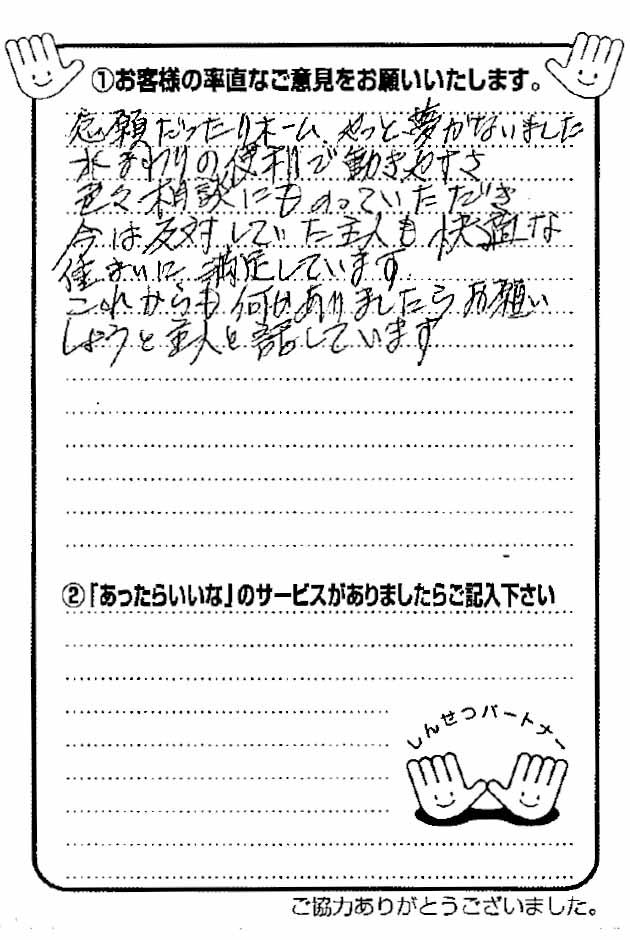 ①お客様の率直なご意見をお願いいたします。
念願だったリホーム、やっと夢がかないました
水まわりの便利で働きやすさ
色々相談にものっていただき
今は反対していた主人も快適な
住まいに満足しています
これからも何かありましたらお願い
しようと主人と話しています
②「あったらいいな」のサービスがありましたらご記入下さい
しんせつパートナー
ご協力ありがとうございました。